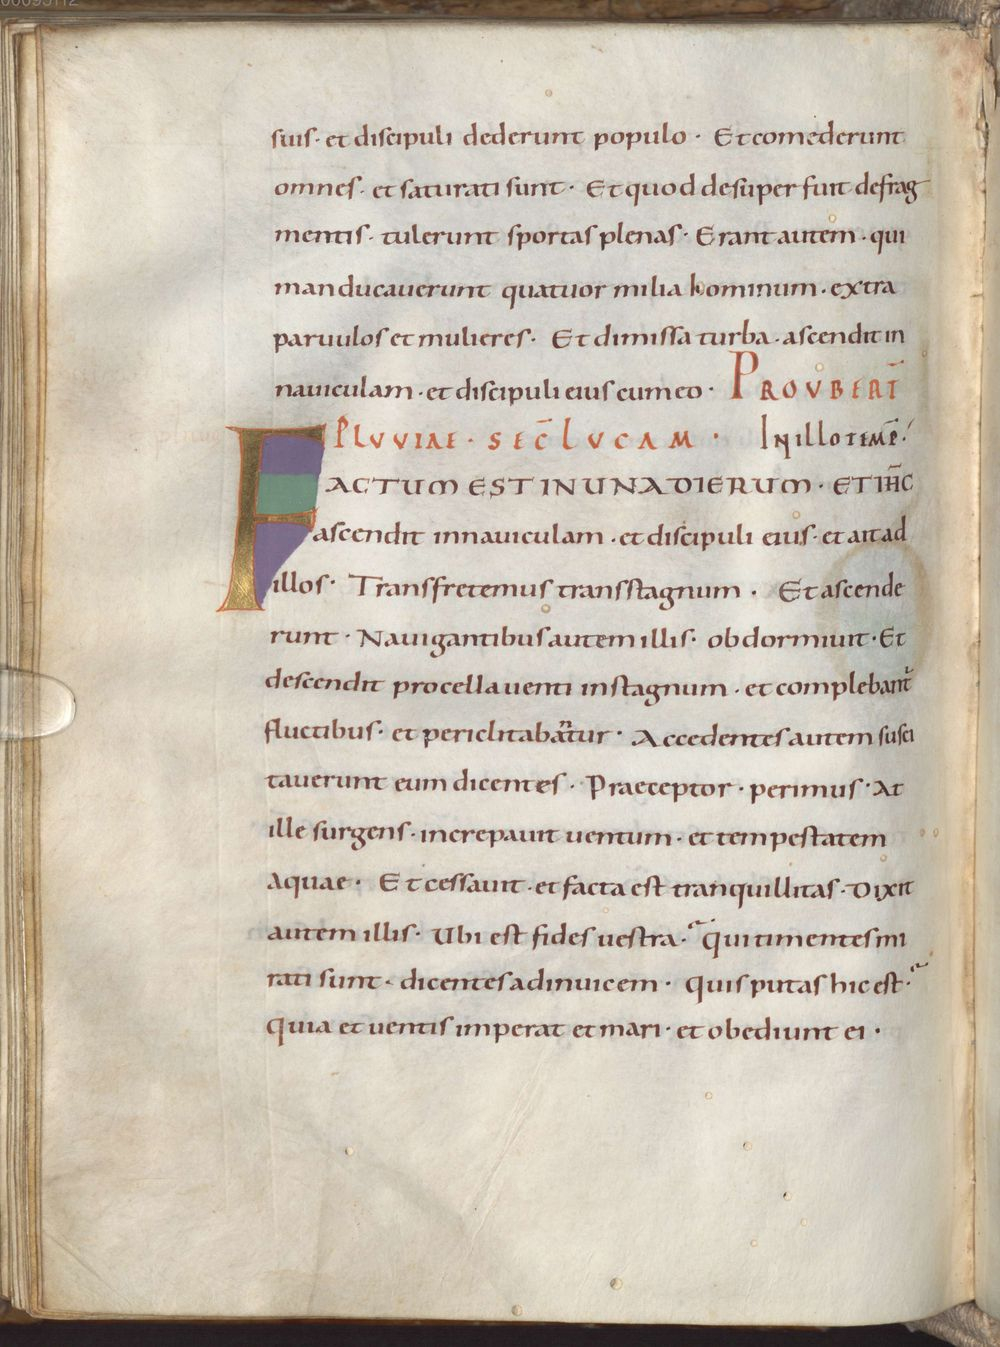 suis· et discipuli dederunt populo· Et comederunt
omnes· et saturati sunt· Et quod desuper fuit defrag
mentis· tulerunt sportas plenas· Erant autem· qui
manducauerunt quatuor milia hominum· extra
paruulos et mulieres· Et dimissa turba· ascendit in
nauiculam· et discipuli eius cum eo· PRO VBERT̄
PLVVIAE· SEC̄ LVCAM· In illo temp̄·
FACTUM EST IN UNA DIERUM· ET IH̄C
ascendit in nauiculam· et discipuli eius· et ait ad
illos· Transfretemus trans stagnum· Et ascende
runt· Nauigantibus autem illis· obdormiuit· Et
descendit procella uenti in stagnum· et complebant᷑
fluctibus· et periclitabantur· Accedentes autem susci
tauerunt eum dicentes· Praeceptor· perimus· At
ille surgens· increpauit uentum· et tempestatem
aquae· Et cessauit· et facta est tranquillitas· Dixit
autem illis· Ubi est fides uestra· qui timentes mi
rati sunt· dicentes adinuicem· Quis putas hic est·
quia et uentis imperat et mari· et obediunt ei·